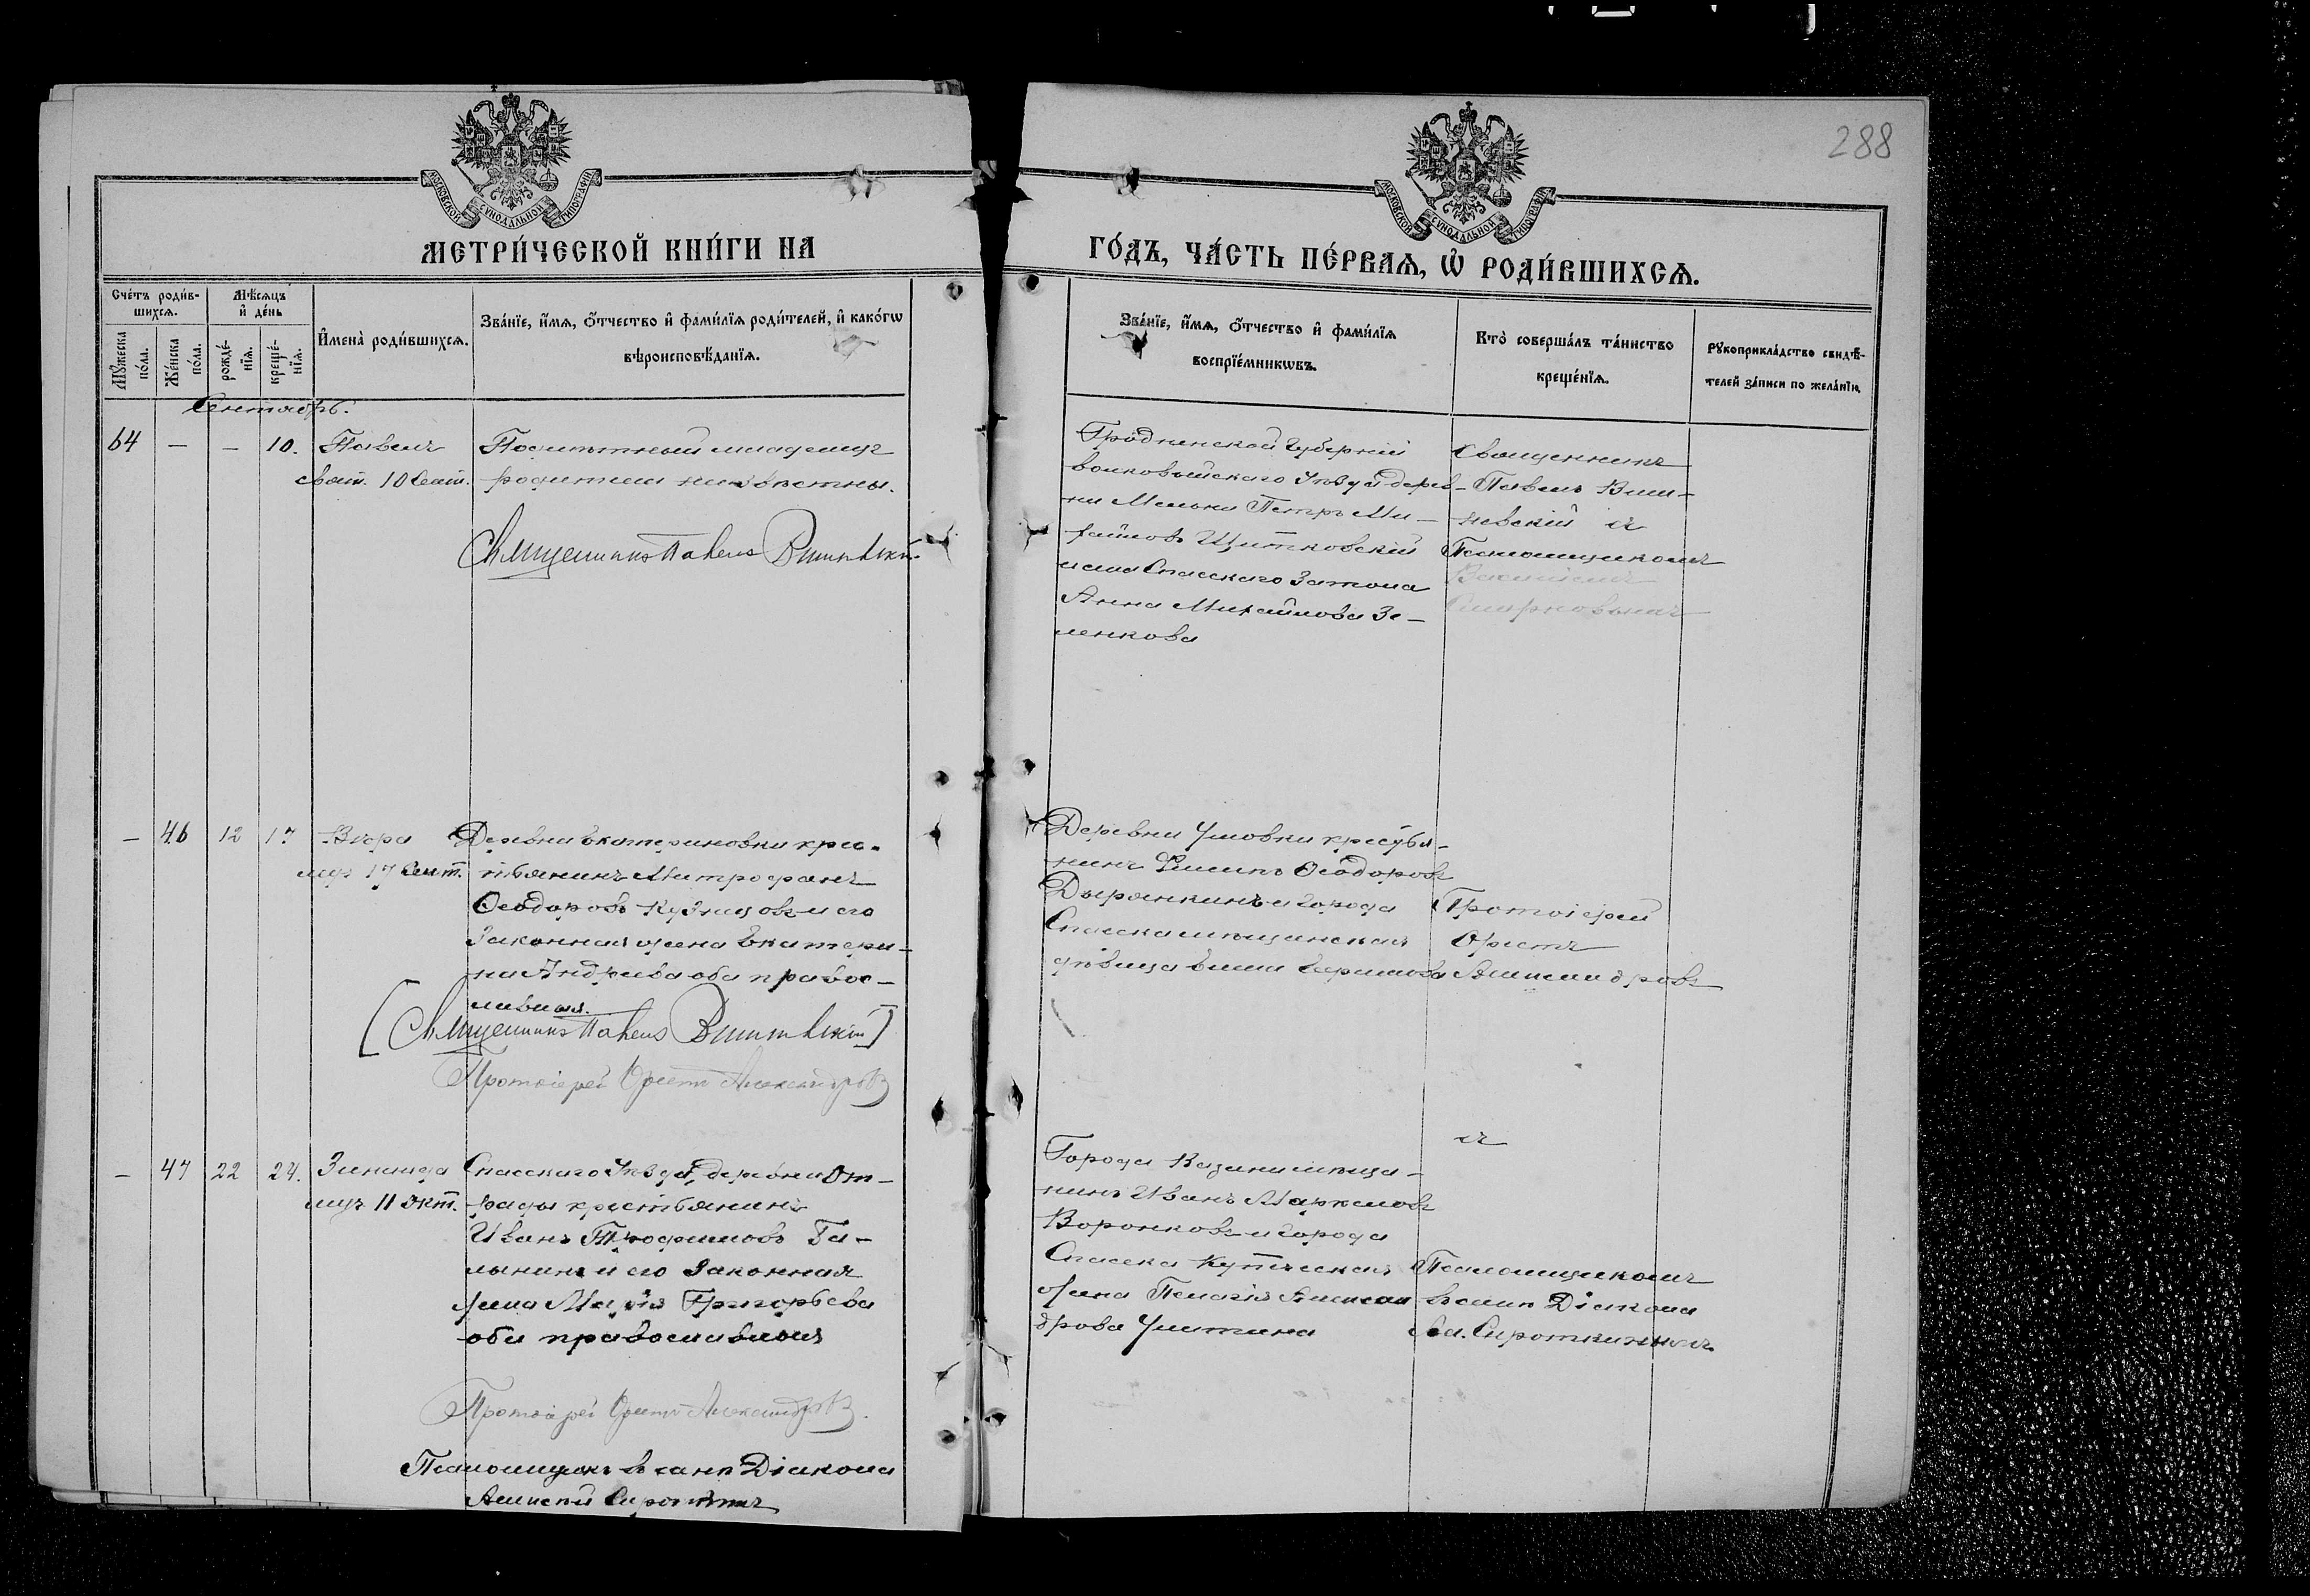 288
МОСКОВСКОЙ СѴНОДАЛЬНОЙ ТИПОГРАФІИ
МОСКОВСКОЙ СѴНОДАЛЬНОЙ ТИПОГРАФІИ
МЕТРИ́ЧЕСКОЙ КНИ́ГИ НА
ГО́ДЪ, ЧА́СТЬ ПЕ́РВАѦ, Ѡ҆ РОДИ́ВШИХСѦ.
Сче́тъ роди́в-
шихсѧ.
Мѣ́сѧцъ
и҆ де́нь
Мꙋ́жеска по́ла.
Же́нска по́ла.
рожде́-
нїѧ.
креще́-
нїѧ.
И҆мена̀ роди́вшихсѧ.
Зва́нїе, и҆́мѧ, ѻ҆́тчество и҆ фами́лїѧ роди́телей, и҆ како́гѡ
вѣроисповѣ́данїѧ.
Зва́нїе, и҆́мѧ, ѻ҆́тчество и҆ фами́лїѧ
воспрїе́мникѡвъ.
Кто̀ соверша́лъ та́инство
креще́нїѧ.
Рꙋкоприкла́дство свидѣ́-
телей за́писи по жела́нїю.
Сентябрь.
64 — — 10. Павелъ
10 Сент.
Подкинутый младенецъ
родители неизвѣстны.
Священникъ Павелъ Вишневскій.
Гродненской Губерніи
Волковыйскаго Уѣзда дерев-
ни Мельни Петръ Ми-
хайловъ Щитковскій
и села Спасскаго Затона
Анна Михайлова Зе-
ленкова
Священникъ
Павелъ Виш-
невскій съ
Псаломщикомъ
Василіемъ
Смирновымъ
— 46 12 17 Вѣра
17 Сент.
Деревни Екатериновки крес-
тьянинъ Митрофанъ
Ѳеодоровъ Кузнецовъ и его
законная жена Екатери-
на Андреева оба правос-
лавные.
[Священникъ Павелъ Вишневскій]
Протоіерей Орестъ Александровъ
Деревни Умовки крестья-
нинъ Филиппъ Ѳеодоровъ
Дырянкинъ и города
Спасска мѣщанская
дѣвица Елена Ефимова
Протоіерей
Орестъ
Александровъ
съ
— 47 22 24. Зинаида
11 Окт.
Спасскаго Уѣзда, деревни От-
рады крестьянинъ
Иванъ Трофимовъ Га-
лынинъ и его законная
жена Марія Григорьева
оба православные
Протоіерей Орестъ Александровъ.
Псаломщикъ въ санѣ Діакона
Алексѣй Сироткинъ
Города Казани мѣща-
нинъ Иванъ Маркеловъ
Воронковъ и города
Спасска Купеческая
жена Пелагія Алексан-
дрова Умитина
Псаломщикомъ
въ санѣ Діакона
Ал. Сироткинымъ.